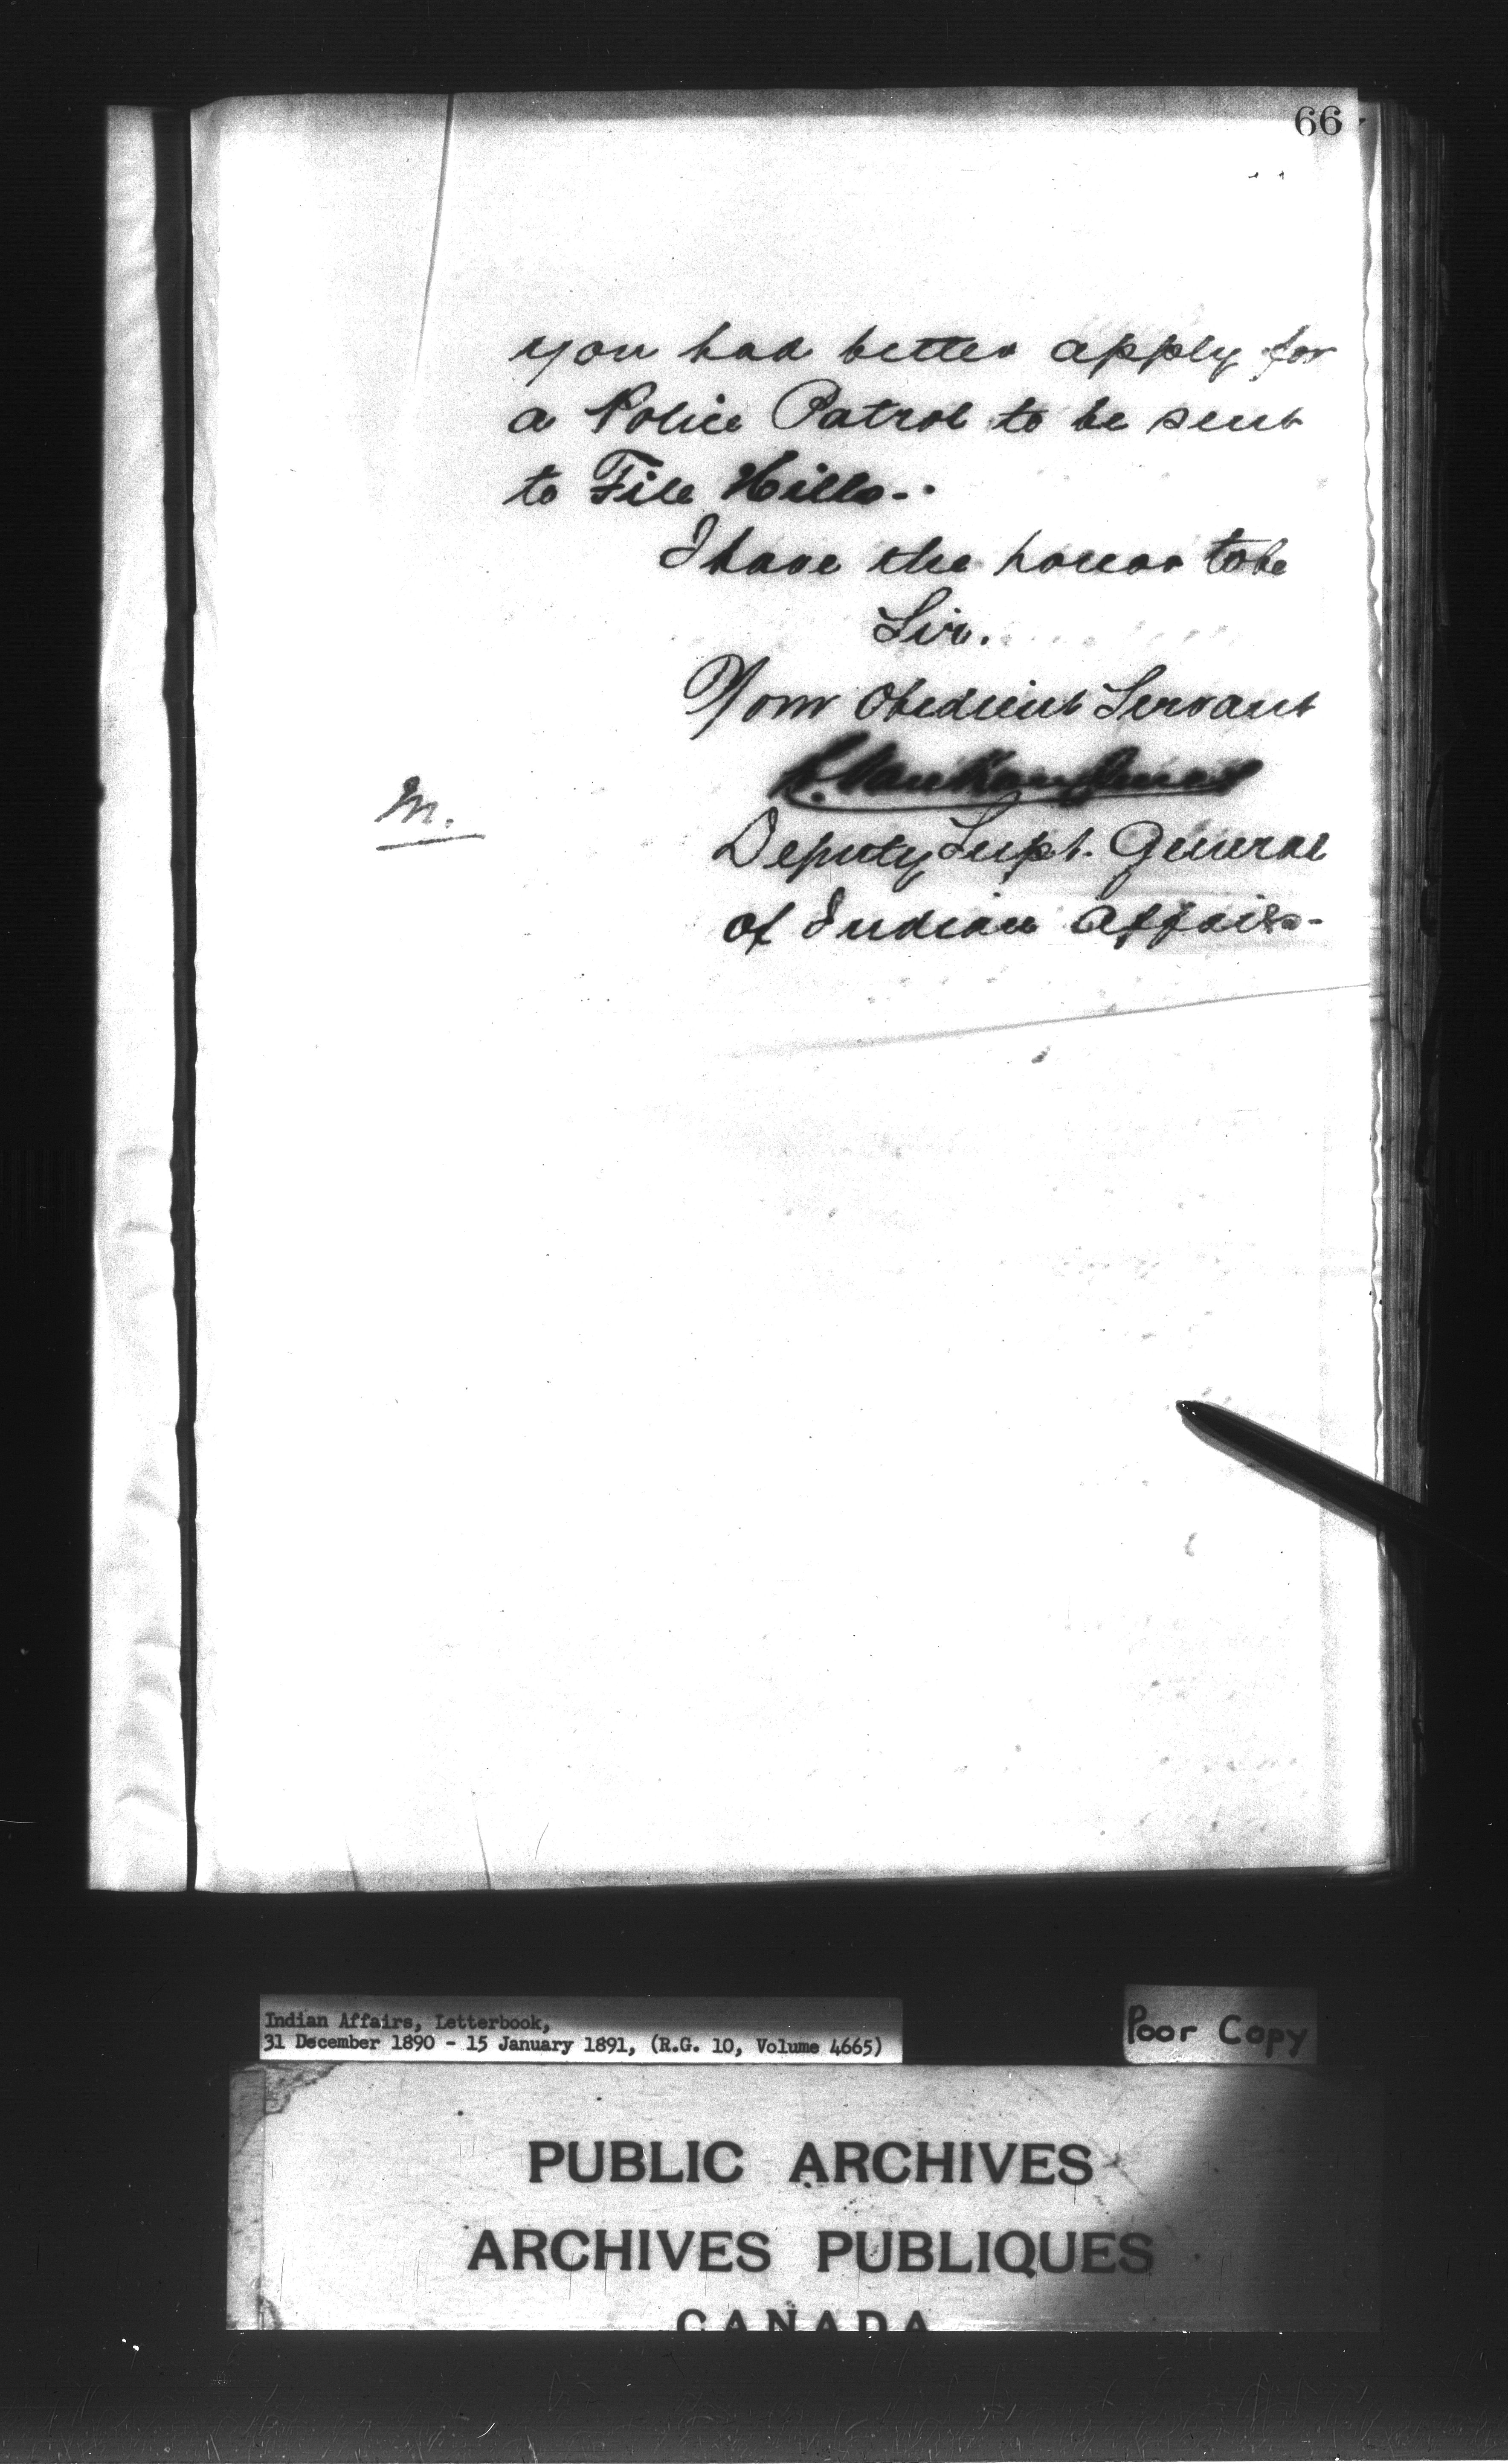 66
you had better apply for
a Police Patrol to be sent
to File Hills.
I have the honor to be
Sir.
Your Obedient Servant
L. VanKoughnet
Deputy Supt. General
of Indian Affairs.
M.
Indian Affairs, Letterbook,
31 December 1890 - 15 January 1891, (R.G. 10, Volume 4665)
Poor Copy
PUBLIC ARCHIVES
ARCHIVES PUBLIQUES
CANADA